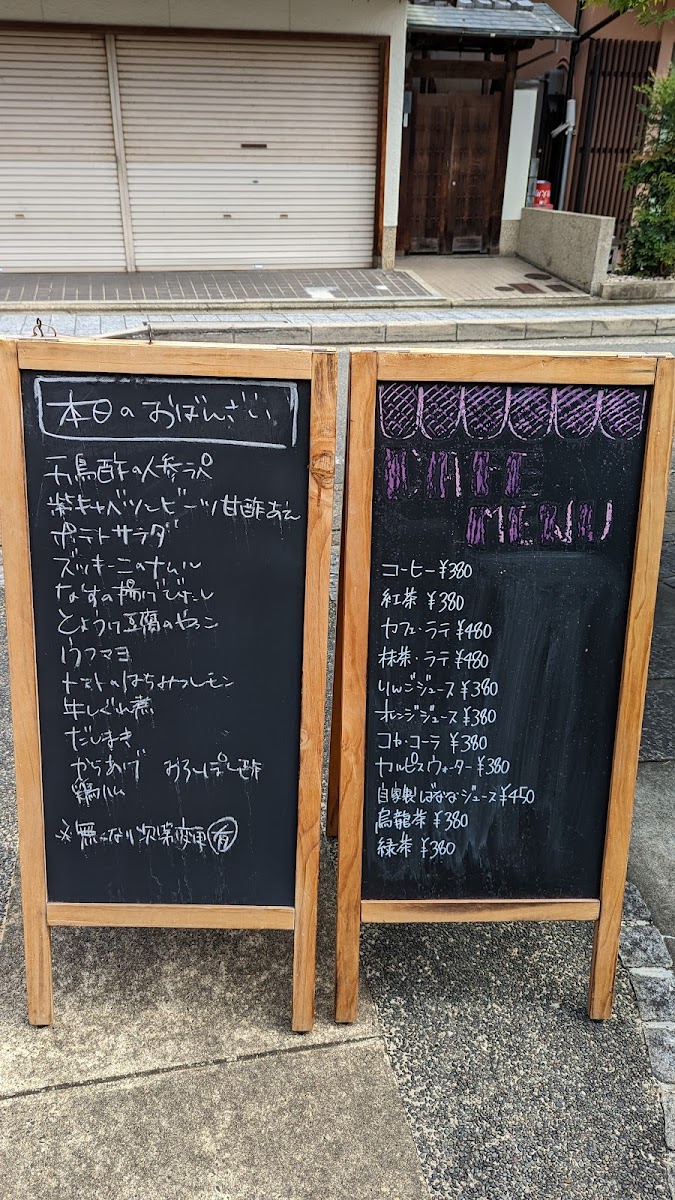 本日のおばんざい
千鳥酢の人参ラペ
紫キャベツとビーツ甘酢あえ
ポテトサラダ
ズッキーニのナムル
なすの揚げびたし
とようけ豆腐のやっこ
ウフマヨ
トマトのはちみつレモン
牛しぐれ煮
だしまき
からあげ おろしポン酢
鶏ハム
※無くなり次第変更有
CAFE
MENU
コーヒー¥380
紅茶 ¥380
カフェ・ラテ¥480
抹茶・ラテ¥480
りんごジュース¥380
オレンジジュース¥380
コカ・コーラ ¥380
カルピスウォーター¥380
自家製ばななジュース¥450
烏龍茶¥380
緑茶 ¥380